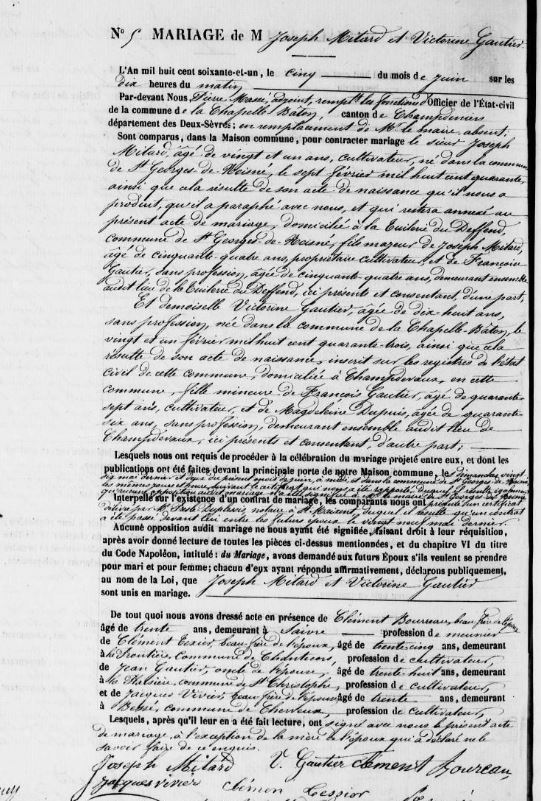 N° 5 MARIAGE de M Joseph Mitard et Victorine Gautier
L'An mil huit cent soixante-et-un, le cinq du mois de juin sur les
dix heures du matin
Par-devant Nous, Pierre Massé, adjoint, rempt. les fonctions d'Officier de l'État-civil
de la commune de la Chapelle Bâton, canton de Champdeniers
département des Deux-Sèvres; en remplacement de Mr. le maire absent.
Sont comparus, dans la Maison commune, pour contracter mariage le sieur Joseph
Mitard, âgé de vingt et un ans, cultivateur, né dans la commune
de St Georges de Noisné, le sept février mil huit cent quarante,
ainsi que cela résulte de son acte de naissance qu'il nous a
produit, qu'il a paraphé avec nous, et qui restera annexé au
présent acte de mariage, domicilié à la Tuilerie du Deffend,
commune de St Georges de Noisné, fils majeur de Joseph Mitard,
âgé de cinquante quatre ans, propriétaire cultivateur, et de Françoise
Gautier, sans profession, âgée de cinquante quatre ans, demeurant ensemble
audit lieu de la Tuilerie du Deffend, ici présents et consentant, d'une part,
Et demoiselle Victorine Gautier, âgée de dix huit ans,
sans profession, née dans la commune de la Chapelle-Bâton, le
vingt et un février mil huit cent quarante-trois, ainsi que cela
résulte de son acte de naissance, inscrit sur les registres de l'état
civil de cette commune, domiciliée à Champdevaux, en cette
commune, fille mineure de François Gautier, âgé de quarante
sept ans, cultivateur, et de Magdeleine Dupuis, âgée de quarante
six ans, sans profession, demeurant ensemble audit lieu de
Champdevaux, ici présents et consentant, d'autre part;
Lesquels nous ont requis de procéder à la célébration du mariage projeté entre eux, et dont les
publications ont été faites devant la principale porte de notre Maison commune, les dimanches vingt
six mai dernier et deux du présent mois de juin, à midi et dans la commune de St Georges de Noisné
les mêmes jours et heure
Interpelle sur l'existence d'un contrat de mariage, les comparants nous ont produit un certificat
délivré par Mr notaire à St Maixent, duquel il résulte qu'un contrat
a été passé devant lui entre les futurs époux le vingt neuf mai dernier
Aucune opposition audit mariage ne nous ayant été signifiée, faisant droit à leur réquisition,
après avoir donné lecture de toutes les pièces ci-dessus mentionnées, et du chapitre VI du titre
du Code Napoléon, intitulé : du Mariage, avons demandé aux futurs Époux s'ils veulent se prendre
pour mari et pour femme; chacun d'eux ayant répondu affirmativement, déclarons publiquement,
au nom de la Loi, que Joseph Mitard et Victorine Gautier
sont unis en mariage.
De tout quoi nous avons dressé acte en présence de Clément Boureau, beau frère de l'époux
âgé de trente ans, demeurant à Saivre profession de meunier
de Clément Texier, beau-frère de l'époux, âgé de trente cinq ans, demeurant
à commune de profession de cultivateur,
de Jean Gautier, oncle de l'épouse, âgé de trente huit ans, demeurant
à commune de St Christophe profession de cultivateur,
et de Jacques Vivier, beau frère de l'épouse, âgé de trente ans, demeurant
à commune de Cherveux profession de cultivateur,
Lesquels, après qu'il leur en a été fait lecture, ont signé avec nous le présent acte
de mariage, à l'exception de la mère de l'époux qui a déclaré ne le
savoir faire de ce enquis.
Joseph Mitard V. Gautier Clément Boureau
Jacques vivier